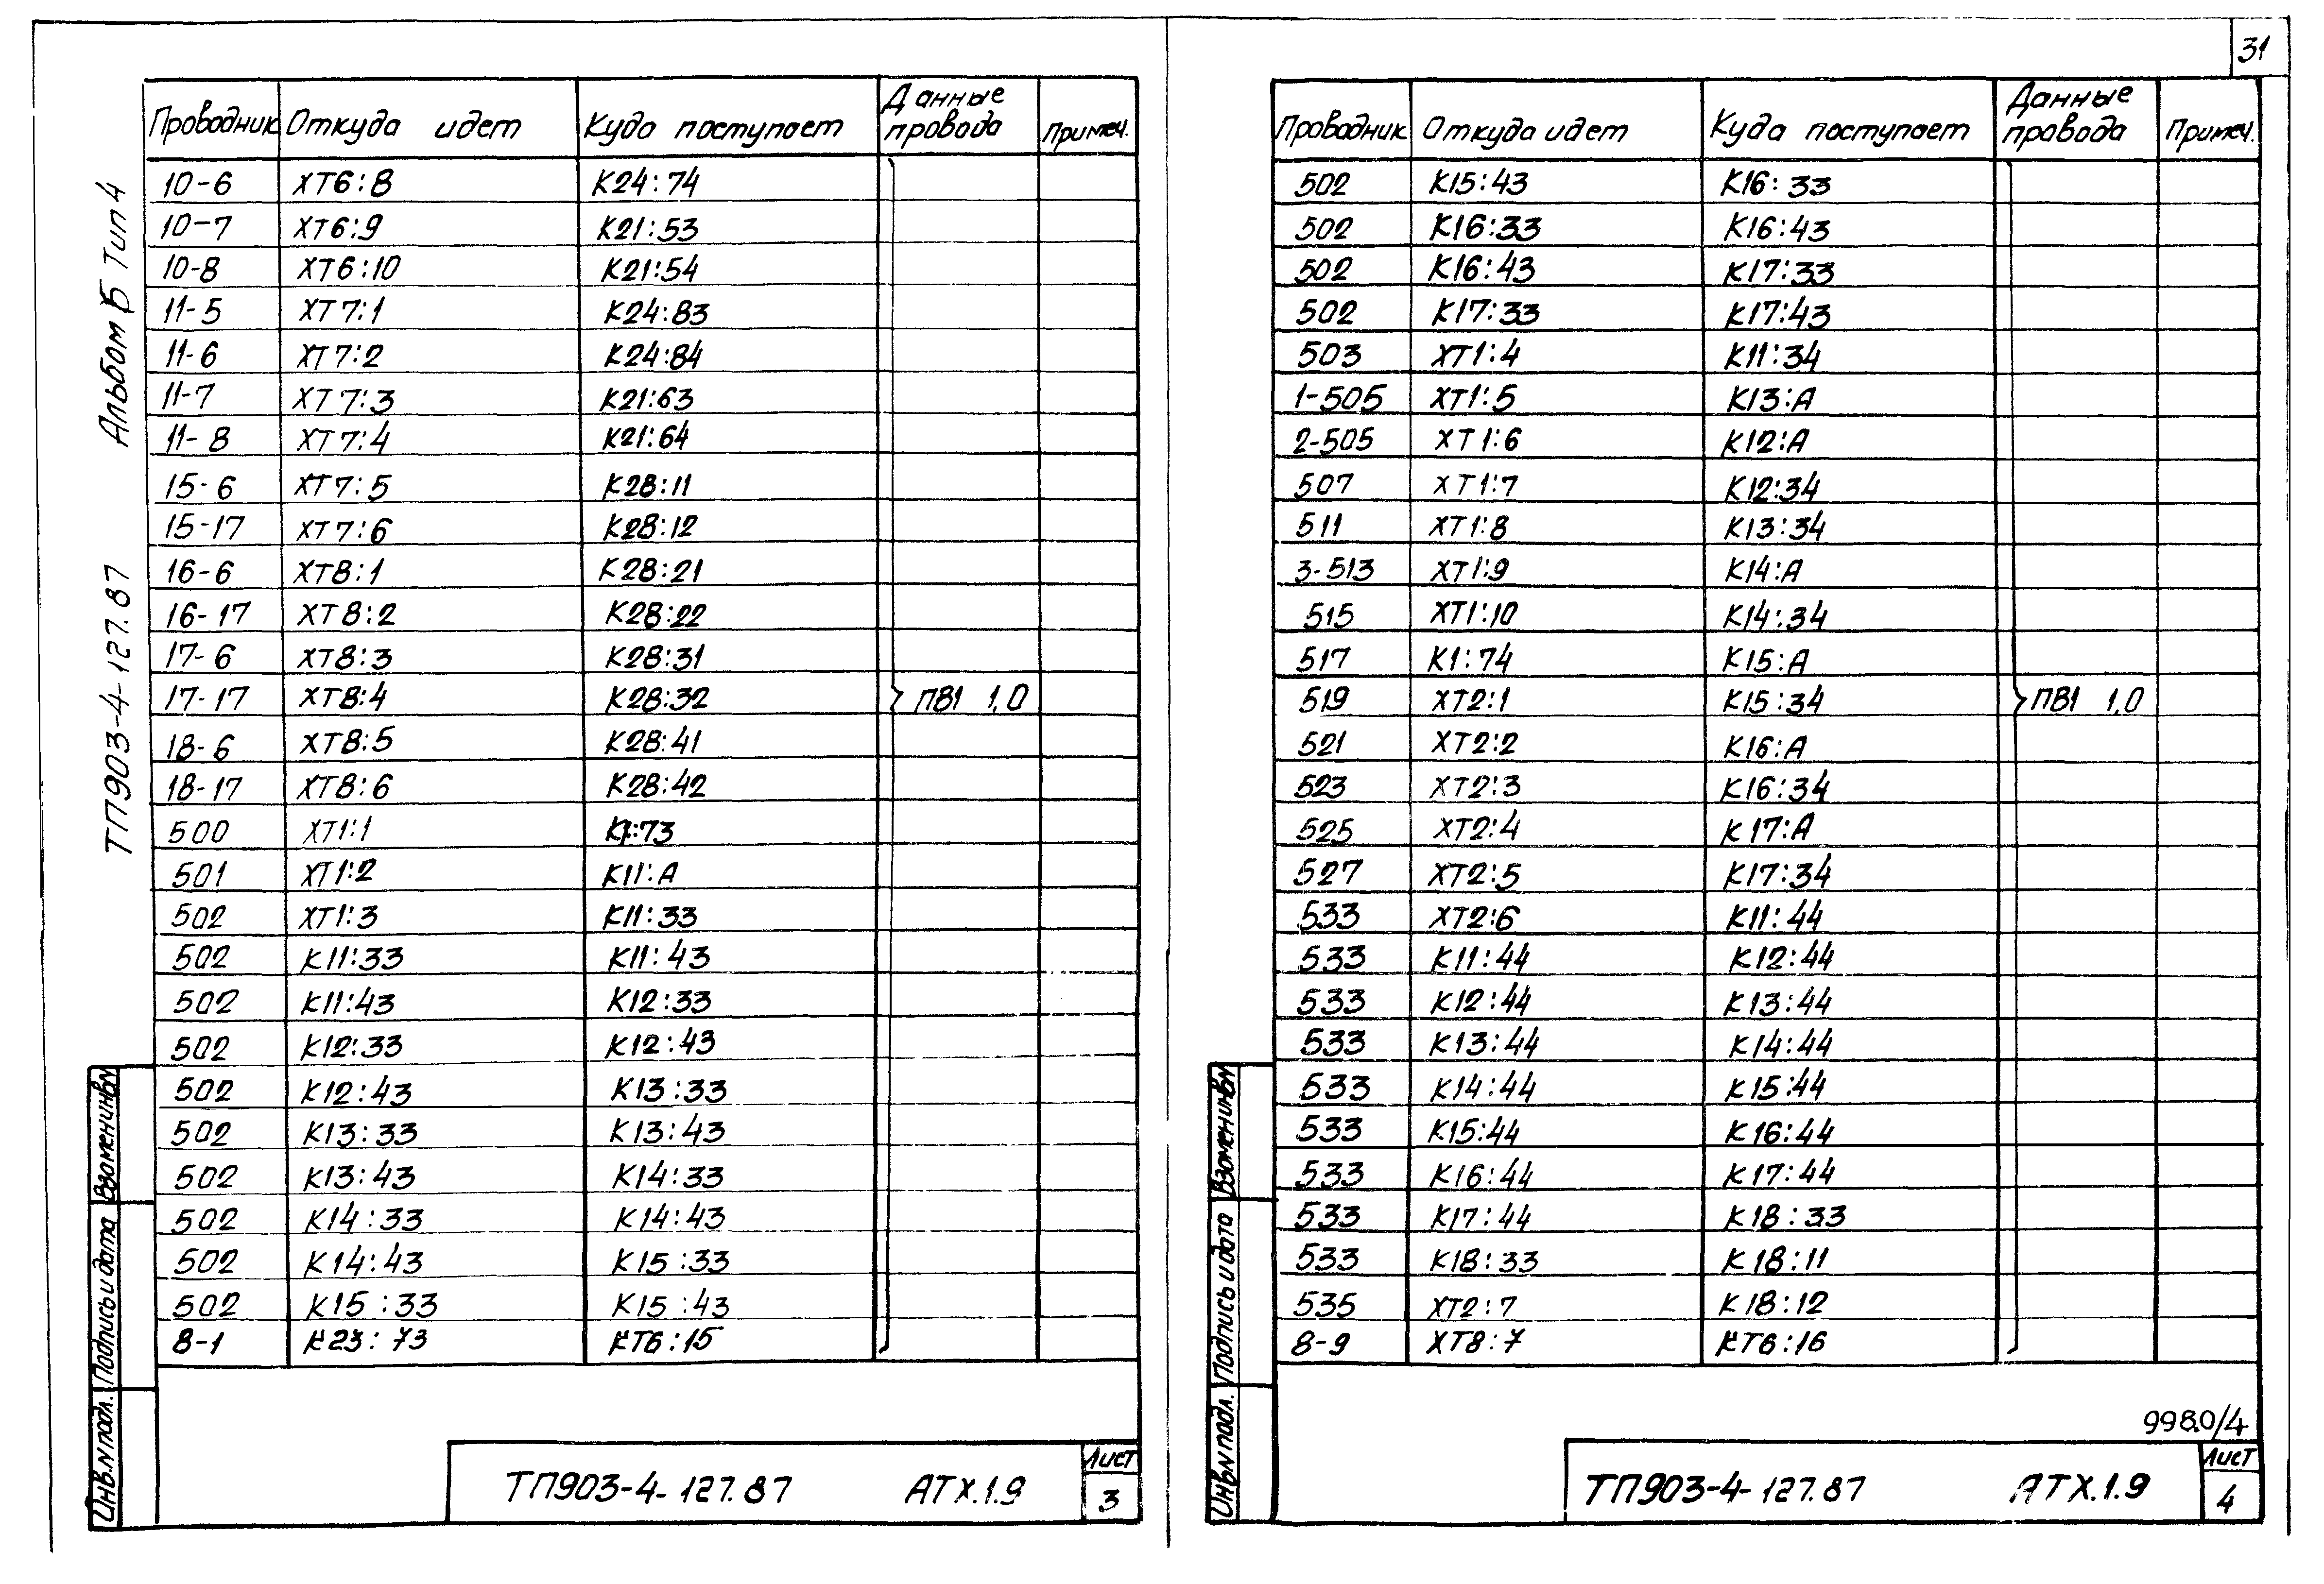 31
ТП903-4-127.87 Альбом 5 Тип 4
Проводник Откуда идет Куда поступает Данные провода Примеч.
10-6 XT6:8 K24:74
10-7 XT6:9 K21:53
10-8 XT6:10 K21:54
11-5 XT7:1 K24:83
11-6 XT7:2 K24:84
11-7 XT7:3 K21:63
11-8 XT7:4 K21:64
15-6 XT7:5 K28:11
15-17 XT7:6 K28:12
16-6 XT8:1 K28:21
16-17 XT8:2 K28:22
17-6 XT8:3 K28:31
17-17 XT8:4 K28:32 ПВ1 1,0
18-6 XT8:5 K28:41
18-17 XT8:6 K28:42
500 XT1:1 K1:73
501 XT1:2 K11:A
502 XT1:3 K11:33
502 K11:33 K11:43
502 K11:43 K12:33
502 K12:33 K12:43
502 K12:43 K13:33
502 K13:33 K13:43
502 K13:43 K14:33
502 K14:33 K14:43
502 K14:43 K15:33
502 K15:33 K15:43
8-1 K23:73 KT6:15
Взамен инв.N
Подпись и дата
Инв.N подл.
ТП903-4-127.87 АТХ.1.9 Лист 3
Проводник Откуда идет Куда поступает Данные провода Примеч.
502 K15:43 K16:33
502 K16:33 K16:43
502 K16:43 K17:33
502 K17:33 K17:43
503 XT1:4 K11:34
1-505 XT1:5 K13:A
2-505 XT1:6 K12:A
507 XT1:7 K12:34
511 XT1:8 K13:34
3-513 XT1:9 K14:A
515 XT1:10 K14:34
517 K1:74 K15:A
519 XT2:1 K15:34 ПВ1 1,0
521 XT2:2 K16:A
523 XT2:3 K16:34
525 XT2:4 K17:A
527 XT2:5 K17:34
533 XT2:6 K11:44
533 K11:44 K12:44
533 K12:44 K13:44
533 K13:44 K14:44
533 K14:44 K15:44
533 K15:44 K16:44
533 K16:44 K17:44
533 K17:44 K18:33
533 K18:33 K18:11
535 XT2:7 K18:12
8-9 XT8:7 KT6:16
Взамен инв.N
Подпись и дата
Инв.N подл.
9980/4
ТП903-4-127.87 АТХ.1.9 Лист 4